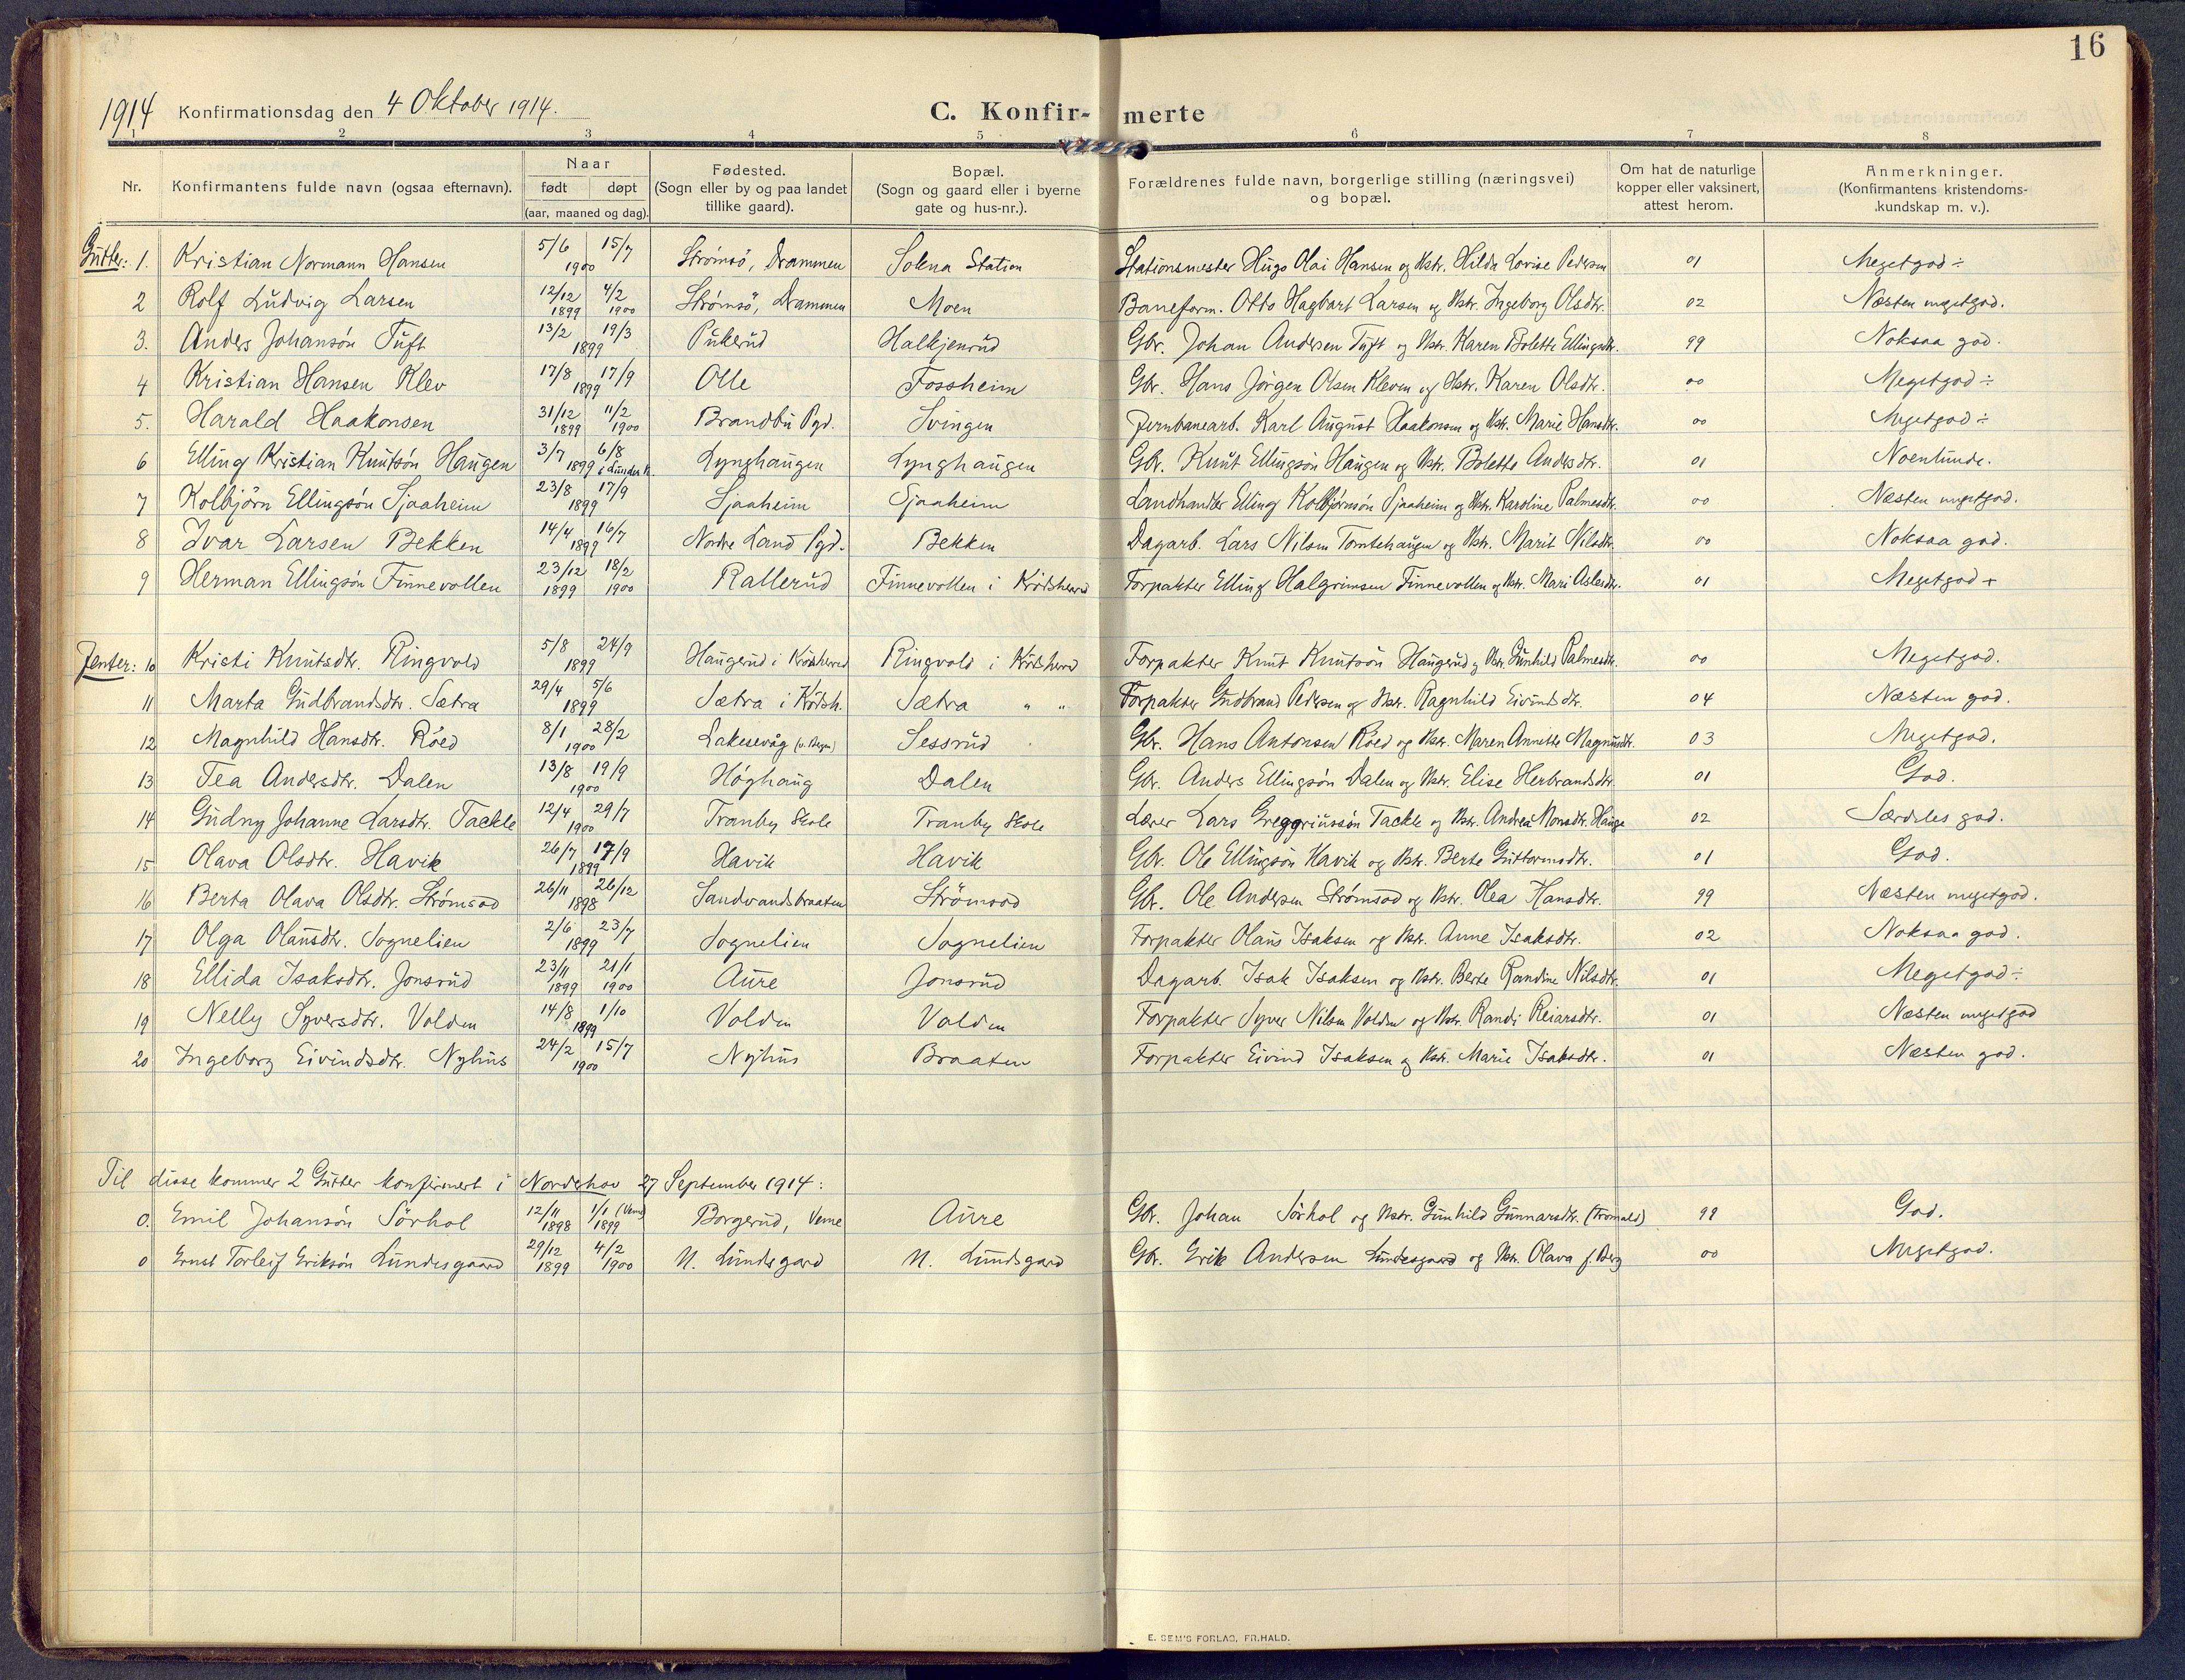 16
1914 Konfirmationsdag den 4 Oktober 1914. C. Konfir- merte
1 2 3 4 5 6 7 8
Nr. Konfirmantens fulde navn (ogsaa efternavn). Naar født døpt (aar, maaned og dag). Fødested. (Sogn eller by og paa landet tillike gaard). Bopæl. (Sogn og gaard eller i byerne gate og hus-nr.). Forældrenes fulde navn, borgerlige stilling (næringsvei) og bopæl. Om hat de naturlige kopper eller vaksinert, attest herom. Anmerkninger. (Konfirmantens kristendoms-kundskap m. v.).
Gutter: 1. Kristian Normann Hansen 5/6 15/7 1900 Strömsö, Drammen Sokna Station Stationsmester Hugo Olai Hansen og Hstr. Hilda Lovise Pedersen 01 Megetgod ÷
2 Rolf Ludvig Larsen 12/12 1899 4/2 1900 Strømsö, Drammen Moen Baneform. Otto Hagbart Larsen og Hstr. Ingeborg Olsdtr. 02 Næsten megetgod.
3. Anders Johansøn Tuft 13/2 19/3 1899 Pukerud Halkjenrud Gbr. Johan Andersen Tuft og Hstr. Karen Bolette Ellingsdtr. 99 Noksaa god.
4 Kristian Hansen Klev 17/8 17/9 1899 Olle Fossheim Gbr. Hans Jörgen Olsen Kleven og Hstr. Karen Olsdtr. 00 Megetgod ÷
5. Harald Haakonsen 31/12 1899 11/2 1900 Brandbu Pgd. Svingen Jernbanearb. Karl August Haakonsen og Hstr. Marie Hansdtr. 00 Megetgod ÷
6 Elling Kristian Knutsøn Haugen 3/7 6/8 1899 i Lunder K. Lynghaugen Lynghaugen Gbr. Knut Ellingsøn Haugen og Hstr. Bolette Andersdtr. 01 Noenlunde.
7 Kolbjörn Ellingsøn Sjaaheim 23/8 17/9 1899 Sjaaheim Sjaaheim Landhandler Elling Kolbjørnsøn Sjaaheim og Hstr. Karoline Palmesdtr. 00 Næsten megetgod.
8 Ivar Larsen Bekken 14/4 16/7 1899 Nordre Land Pgd. Bekken Dagarb. Lars Nilsen Tomtehaugen og Hstr. Marit Nilsdtr. 00 Noksaa god.
9 Herman Ellingsøn Finnevollen 23/12 1899 18/2 1900 Rallerud Finnevollen i Krödsherred Forpakter Elling Halgrimsen Finnevollen og Hstr. Mari Aslesdtr. 01 Megetgod +
Jenter: 10 Kristi Knutsdtr. Ringvold 5/8 24/9 1899 Haugerud i Krødsherred Ringvold i Krødsherred Forpakter Knut Knutsøn Haugerud og Hstr. Gunhild Palmesdtr. 00 Megetgod.
11 Marta Gudbrandsdtr. Sætra 29/4 5/6 1899 Sætra i Krødsh. Sætra " " Forpakter Gudbrand Pedersen og Hstr. Ragnhild Eivindsdtr. 04 Næsten god.
12 Magnhild Hansdtr. Röed 8/1 28/2 1900 Laksevåg (v. Bergen) Sessrud Gbr. Hans Antonsen Röed og Hstr. Maren Annette Magnusdtr. 03 Megetgod.
13 Tea Andersdtr. Dalen 13/8 19/9 1900 Høghaug Dalen Gbr. Anders Ellingsøn Dalen og Hstr. Elise Herbrandsdtr. 01 God.
14 Gudny Johanne Larsdtr. Tackle 12/4 29/7 1900 Tranby Skole Tranby Skole Lærer Lars Greggriussøn Tackle og Hstr. Andrea Monsdtr. Hauge 02 Særdeles god.
15 Olava Olsdtr. Havik 26/7 17/9 1899 Havik Havik Gbr. Ole Ellingsøn Havik og Hstr. Berte Guttormsdtr. 01 God.
16 Berta Olava Olsdtr. Strømsod 26/11 26/12 1898 Sandvandsbraaten Strömsod Gbr. Ole Andersen Strømsod og Hstr. Olea Hansdtr. 99 Næsten megetgod.
17 Olga Olausdtr. Sognelien 2/6 23/7 1899 Sognelien Sognelien Forpakter Olaus Isaksen og Hstr. Anne Isaksdtr. 02 Noksaa god.
18 Ellida Isaksdtr. Jonsrud 23/11 1899 21/1 1900 Aure Jonsrud Dagarb. Isak Isaksen og Hstr. Berte Randine Nilsdtr. 01 Megetgod ÷
19 Nelly Syversdtr. Volden 14/8 1/10 1899 Volden Volden Forpakter Syver Nilsen Volden og Hstr. Randi Reiarsdtr. 01 Næsten megetgod
20 Ingeborg Eivindsdtr. Nyhus 24/2 15/7 1900 Nyhus Braaten Forpakter Eivind Isaksen og Hstr. Marie Isaksdtr. 01 Næsten god.
Til disse kommer 2 Gutter konfirmert i Norderhov 27 September 1914:
0. Emil Johansøn Sörhol 12/11 1898 1/1 (Veme) 1899 Borgerud, Veme Aure Gbr. Johan Sörhol og Hstr. Gunhild Gunnarsdtr. (Tromald) 99 God.
0 Ernst Torleif Eriksøn Lundesgaard 29/12 1899 4/2 1900 N. Lundesgard N. Lundsgard Gbr. Erik Andersen Lundesgaard og Hstr. Olava f. Berg 00 Megetgod.
E. SEM'S FORLAG, FR.HALD.